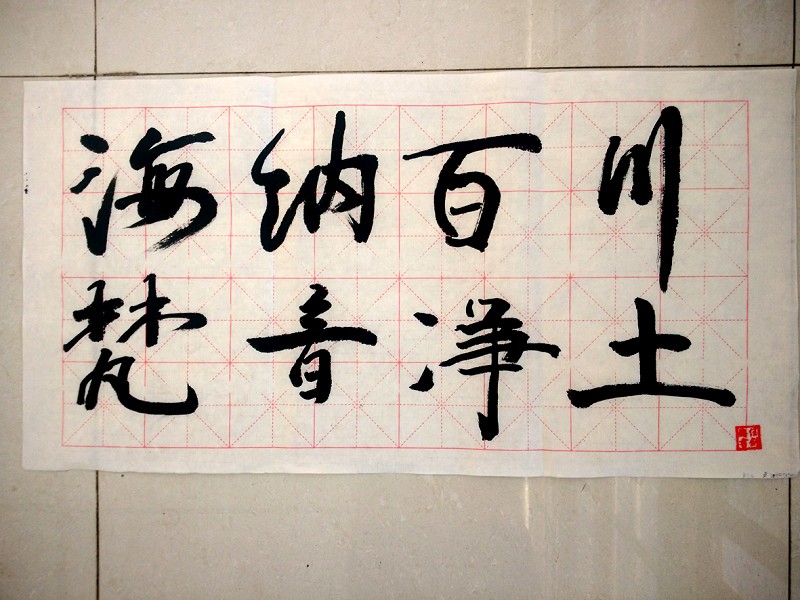 海纳百川
梵音净土